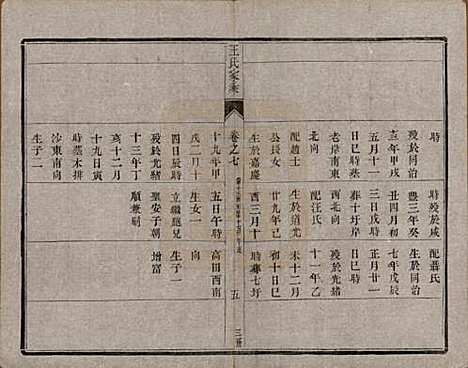 時
歿於同治
壬年甲戌
五月十一
日巳時葬
老岸南東
北向
配趙氏
公長女
生於嘉慶
時歿於咸
豐三年癸
丑四月初
三日戌時
葬十圩岸
西北向
配汪氏
生於道光
廿九年己
酉三月十
配蔣氏
生於同治
七年戊辰
正月廿一
日巳時
歿於光緒
十一年乙
未十二月
初十日巳
時葬七圩
王氏家乘
卷之七
五
十九年甲
戌二月十
四日辰時
歿於光緒
十三年丁
亥十二月
十九日寅
時葬木排
沙東南向
生子二
五日午時
生女一
立繼聰兒
聖安子朝
順兼嗣
高田西南
向
生子一
增富